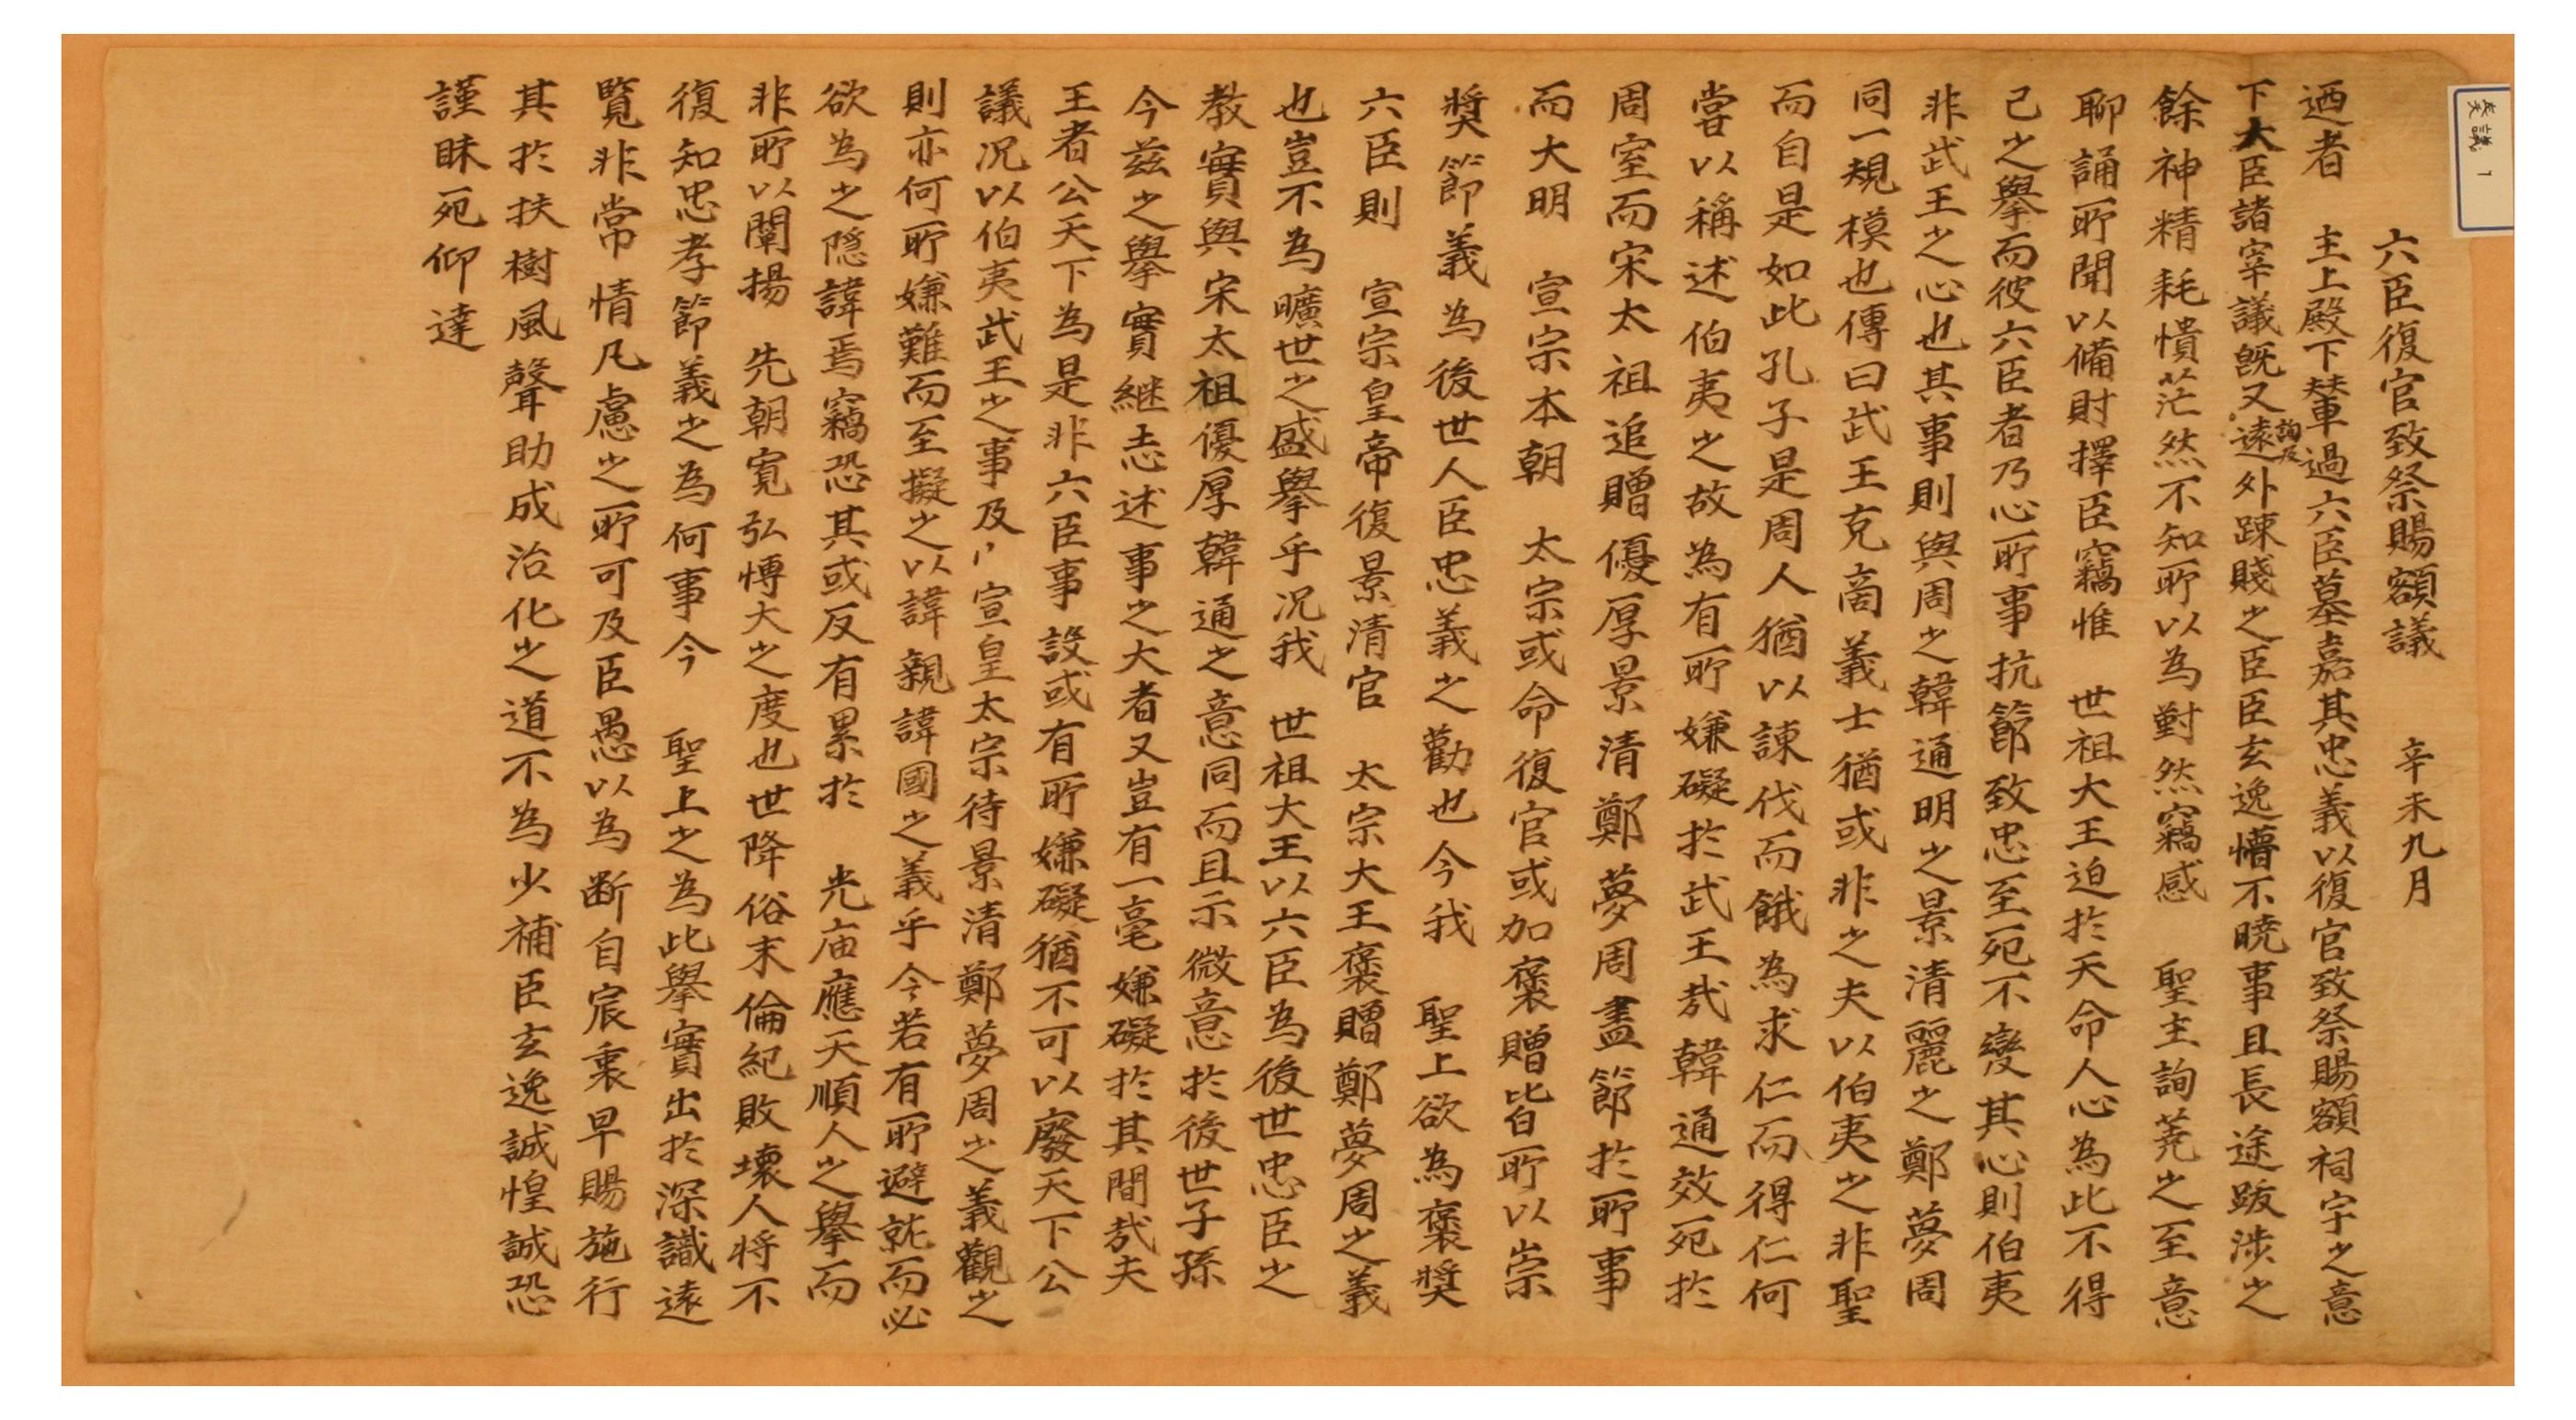 六臣復官致祭賜額議 辛未九月
迺者 主上殿下輦過六臣墓嘉其忠義以復官致祭賜額祠宇之意
下大臣諸宰議旣又詢及遠外踈賤之臣臣玄逸懵不曉事且長途跋涉之
餘神精耗憒茫然不知所以為對然竊感 聖主詢蕘之至意
聊誦所聞以備財擇臣竊惟 世祖大王迫於天命人心為此不得
已之擧而彼六臣者乃心所事抗節致忠至死不變其心則伯夷
非武王之心也其事則與周之韓通明之景清麗之鄭夢周
同一規模也傳曰武王克商義士猶或非之夫以伯夷之非聖
而自是如此孔子是周人猶以諫伐而餓為求仁而得仁何
嘗以稱述伯夷之故為有所嫌礙於武王㢤韓通效死於
周室而宋太祖追贈優厚景清鄭夢周盡節於所事
而大明 宣宗本朝 太宗或命復官或加褒贈皆所以崇
奬節義為後世人臣忠義之勸也今我 聖上欲為褒奬
六臣則 宣宗皇帝復景清官 太宗大王褒贈鄭夢周之義
也豈不為曠世之盛擧乎况我 世祖大王以六臣為後世忠臣之
教實與宋太祖優厚韓通之意同而且示微意於後世子孫
今茲之擧實継志述事之大者又豈有一毫嫌礙於其間㢤夫
王者公天下為是非六臣事設或有所嫌礙猶不可以廢天下公
議况以伯夷武王之事及 宣皇太宗待景清鄭夢周之義觀之
則亦何所嫌難而至擬之以諱親諱國之義乎今若有所避就而必
欲為之隱諱焉竊恐其或反有累於 光庙應天順人之擧而
非所以闡揚 先朝寬弘慱大之度也世降俗末倫紀敗壞人將不
復知忠孝節義之為何事今 聖上之為此擧實出於深識遠
覽非常情凡慮之所可及臣愚以為断自宸衷早賜施行
其於扶樹風聲助成治化之道不為少補臣玄逸誠惶誠恐
謹昧死仰達